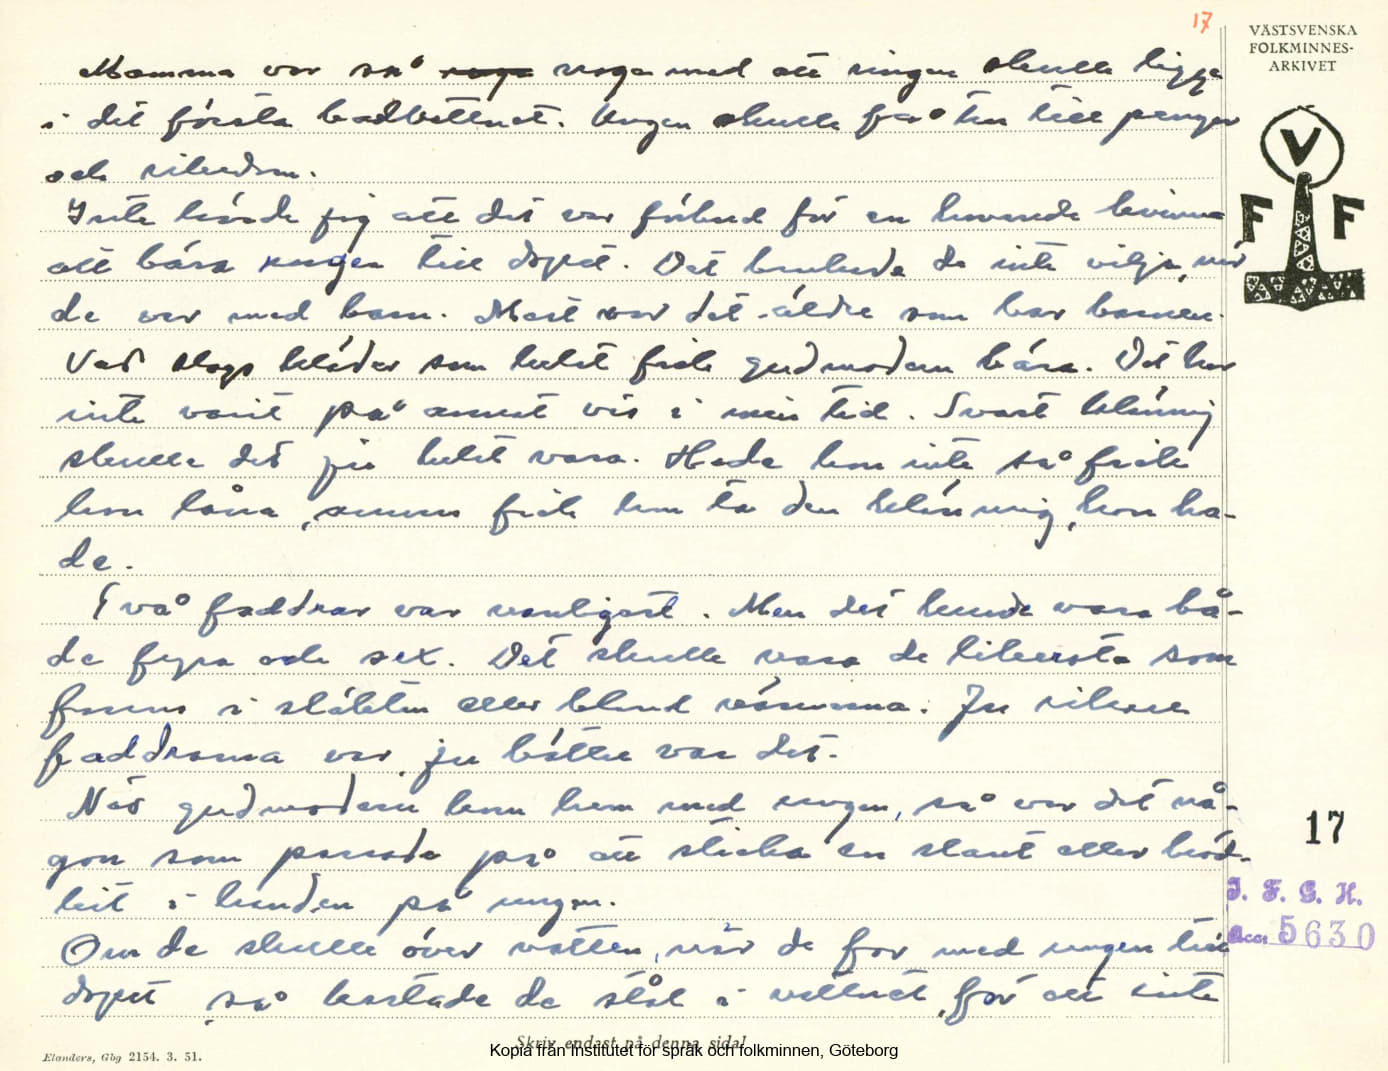 17
VÄSTSVENSKA
FOLKMINNES-
ARKIVET
Mamma var så noga med att ringen skulle ligga
i det första badvattnet. Ungen skulle få tur till pengar
och rikedom.
Inte hörde jag att det var förbud för en havande kvinna
att bära ungen till dopet. Det brukade de inte vilja, när
de var med barn. Mest var det äldre som bar barnen.
Vad slags kläder som helst fick gudmodern bära. Det har
inte varit på annat vis i min tid. Svart klänning
skulle det ju helst vara. Hade hon inte så fick
hon låna, annars fick hon ta den klänning, hon ha-
de.
Två faddrar var vanligast. Men det kunde vara bå-
de fyra och sex. Det skulle vara de rikaste som
fanns i släkten eller bland vännerna. Ju rikare
faddrarna var, ju bättre var det.
När gudmodern kom hem med ungen, så var det nå-
gon som passade på att sticka en slant eller bröd-
bit i handen på ungen.
Om de skulle över vatten, när de for med ungen till
dopet, så kastade de stål i vattnet, för att inte
V
F F
17
I. F. G. H.
Acc: 5630
Skriv endast på denna sida!
Elanders, Gbg 2154. 3. 51.
Kopia från Institutet för språk och folkminnen, Göteborg